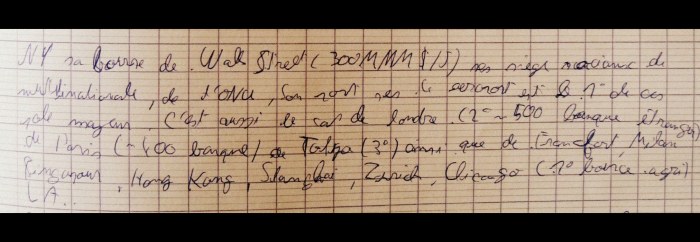 NY sa bourse de Wall Street (300MMM$/J) ses siège sociaux de
multinationale, de l'ONU, son port ses le aéroport est le 1° de ces
pole majeur. C'est aussi le cas de londre (2° ~ 500 banque étranger)
de Paris (~400 banque) de Tokyo (3°) ainsi que de Francfort, Milan
Singapour, Hong Kong, Shanghai, Zurich, Chicago (1° bource agri)
LA..